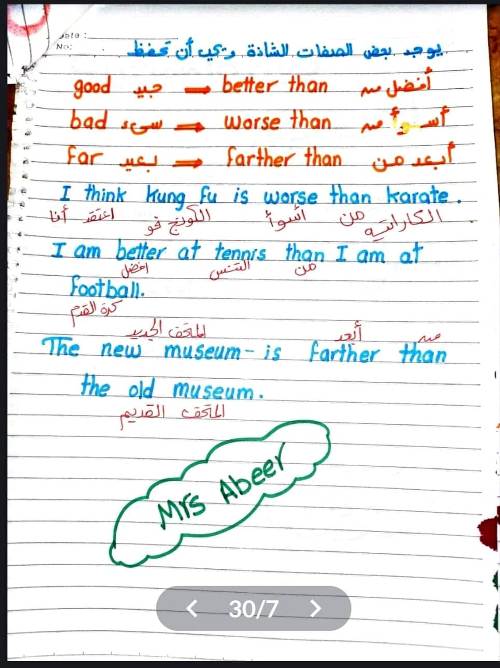 Date :
No:
يوجد بعض الصفات الشاذة ويجب أن تحفظ
good جيد → better than أفضل من
bad سيء → worse than أسوأ من
far بعيد → farther than أبعد من
I think kung fu is worse than karate.
اعتقد أنا الكونج فو أسوأ من الكاراتيه
I am better at tennis than I am at
افضل التنس من
football.
كرة القدم
المتحف الجديد أبعد من
The new museum is farther than
the old museum.
المتحف القديم
Mrs Abeer
< 30/7 >